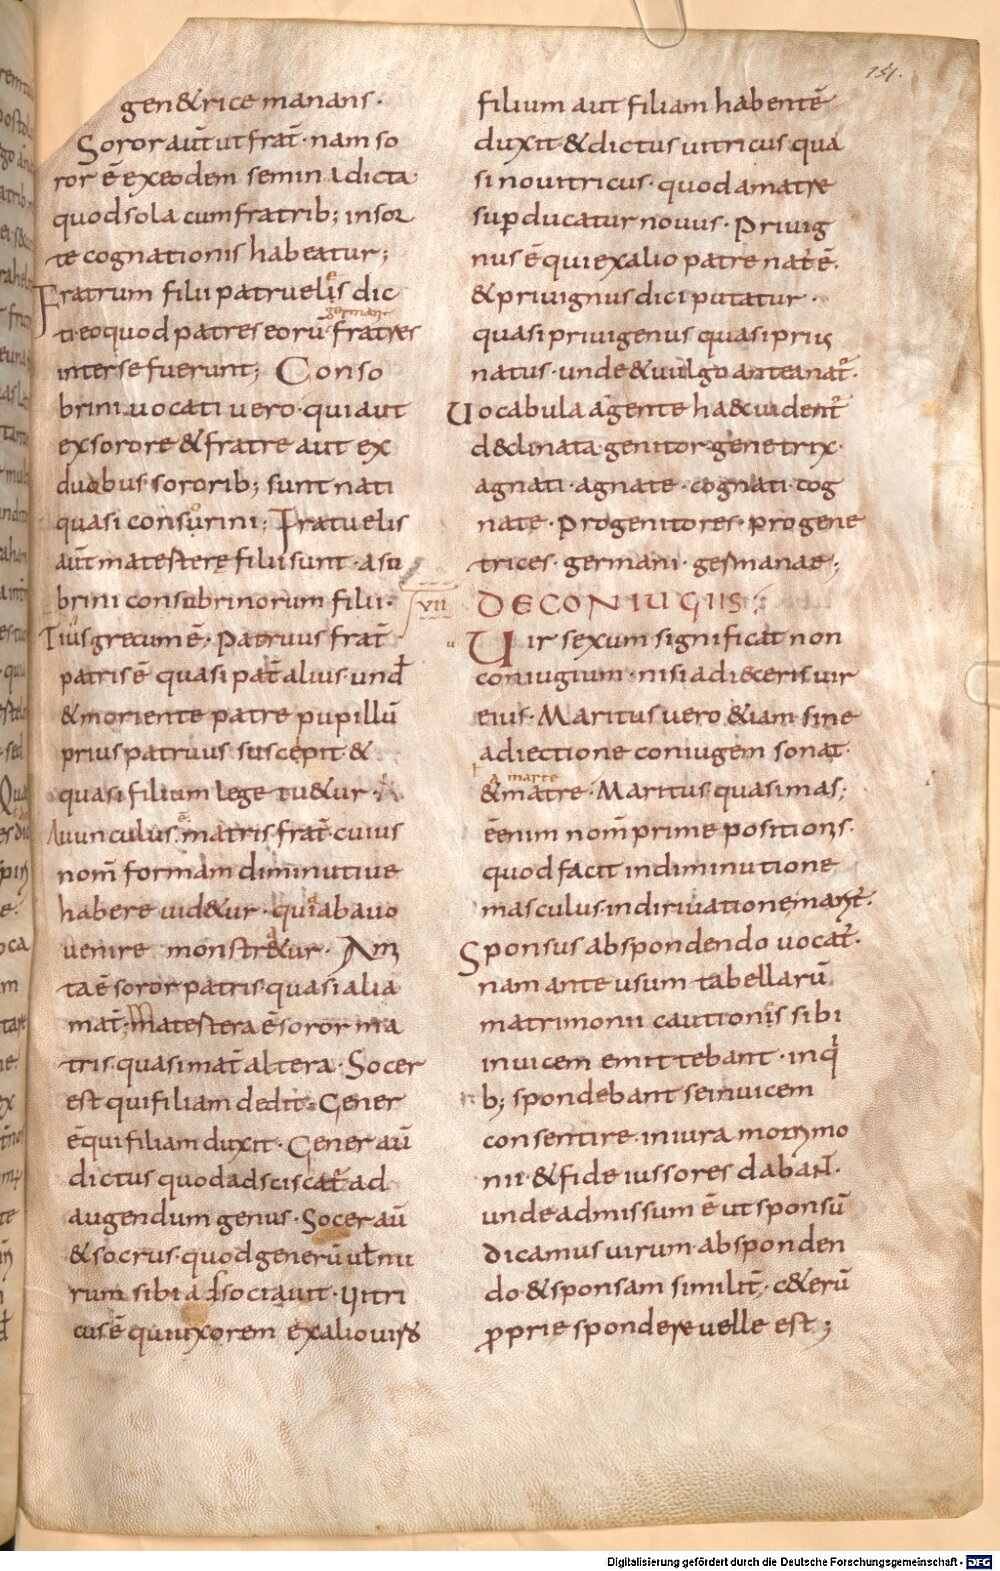 151.
gen&rice manans·
Soror aut̄ ut frat̄· nam so
ror ē ex eodem semin a dicta·
quod sola cum fratrib; in sor
te cognationis habeatur;
Fratrum filii patruelis dic
german·
ti eo quod patres eorū fratres
inter se fuerunt; Conso
brini uocati uero· qui aut
ex sorore & fratre aut ex
duobus sororib; sunt nati
quasi consurini; Fratuelis
aut̄ matesterę filii sunt· aso
brini consubrinorum filii·
Tius grecum ē· Patruus frat̄
patris ē quasi pat̄ alius· und
& moriente patre pupillū
prius patruus suscepit &
quasi filium lege tu&ur· A
Auunculus ē matris frat̄· cuius
nom̄ formam diminutiue
habere uid&ur· quia ab auo
uenire monstr&ur· Am
ta ē soror patris quasi alia
mat̄; matestera ē soror ma
tris quasi mat̄ altera· Socer
est qui filiam dedit· Gener
ē qui filiam duxit· Gener aū
dictus quod adsciscat̄ ad
augendum genus· Socer aū
& socrus· quod generū ut nu
rum sibi adsociauit· Uitri
cus ē qui uxorem ex alio uiro
filium aut filiam habentē
duxit & dictus uitricus qua
si nouitricus· quod a matre
sup̄ ducatur nouus· Priuig
nus ē qui ex alio patre nat' ē·
& priuignus dici putatur·
quasi priuigenus quasi prius
natus· unde & uulgo anteanat̄·
Uocabula a gente ha& uident̄
d&clinata· genitor· genetrix·
agnati· agnate· cognati· cog
nate· Progenitores· progene
trices· germani· germanae;
VII DE CONIUGIIS;
Uir sexum significat non
coniugium· nisi adieceris uir
eius· Maritus uero &iam sine
adiectione coniugem sonat·
A marte
& matre· Maritus· quasi mas;
ē enim nom̄ prime positionis·
quod facit in diminutione
masculus· in diriuatione marit̄·
Sponsus ab spondendo uocat̄·
nam ante usum tabellarū
matrimonii cautionis sibi
inuicem emittebant· in q
b; spondebant se inuicem
consentire in iura matrimo
nii· & fideiussores daban̄t·
unde admissum ē ut sponsū
dicamus uirum· ab sponden
do & sponsam similit̄· c&erū
proprie spondere uelle est;
Digitalisierung gefördert durch die Deutsche Forschungsgemeinschaft - DFG